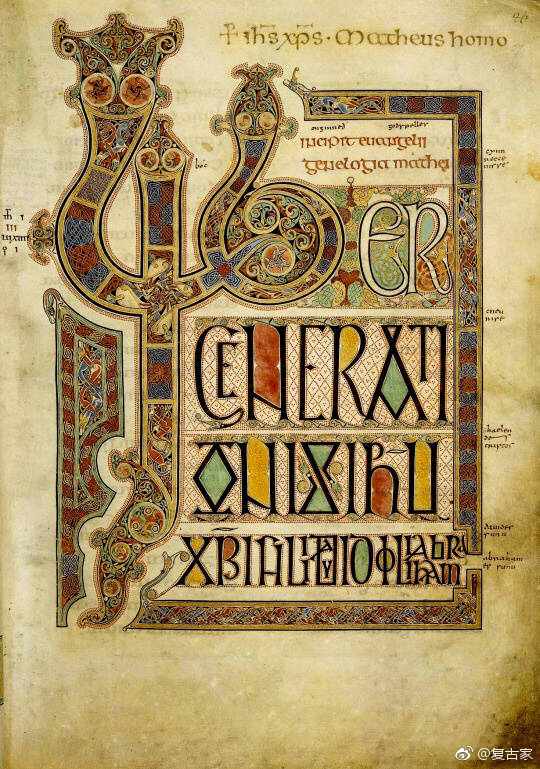 ihs xps · Matheus homo
incipit euangelii
genelogia mathei
boc
LIBER
GENERATI
ONIS IHU
XPI FILII DAVID FILII ABRAHAM
@复古家